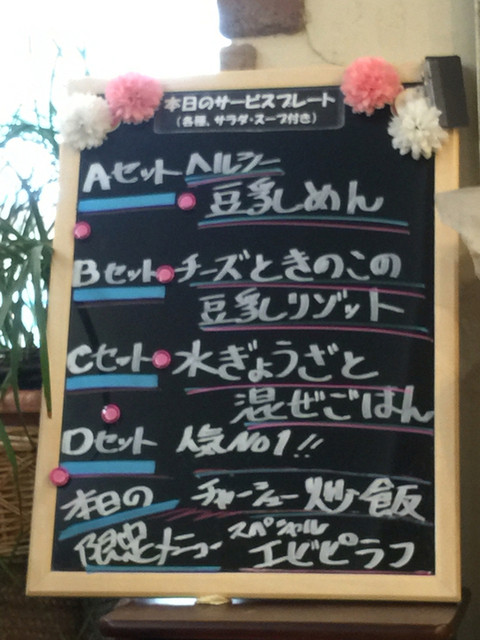 本日のサービスプレート
(各種、サラダ・スープ付き)
Aセット ヘルシー
豆乳しめん
Bセット チーズときのこの
豆乳リゾット
Cセット 水ぎょうざと
混ぜごはん
Dセット 人気No1!!
チャーシュー炒飯
本日の
限定メニュー スペシャル
エビピラフ